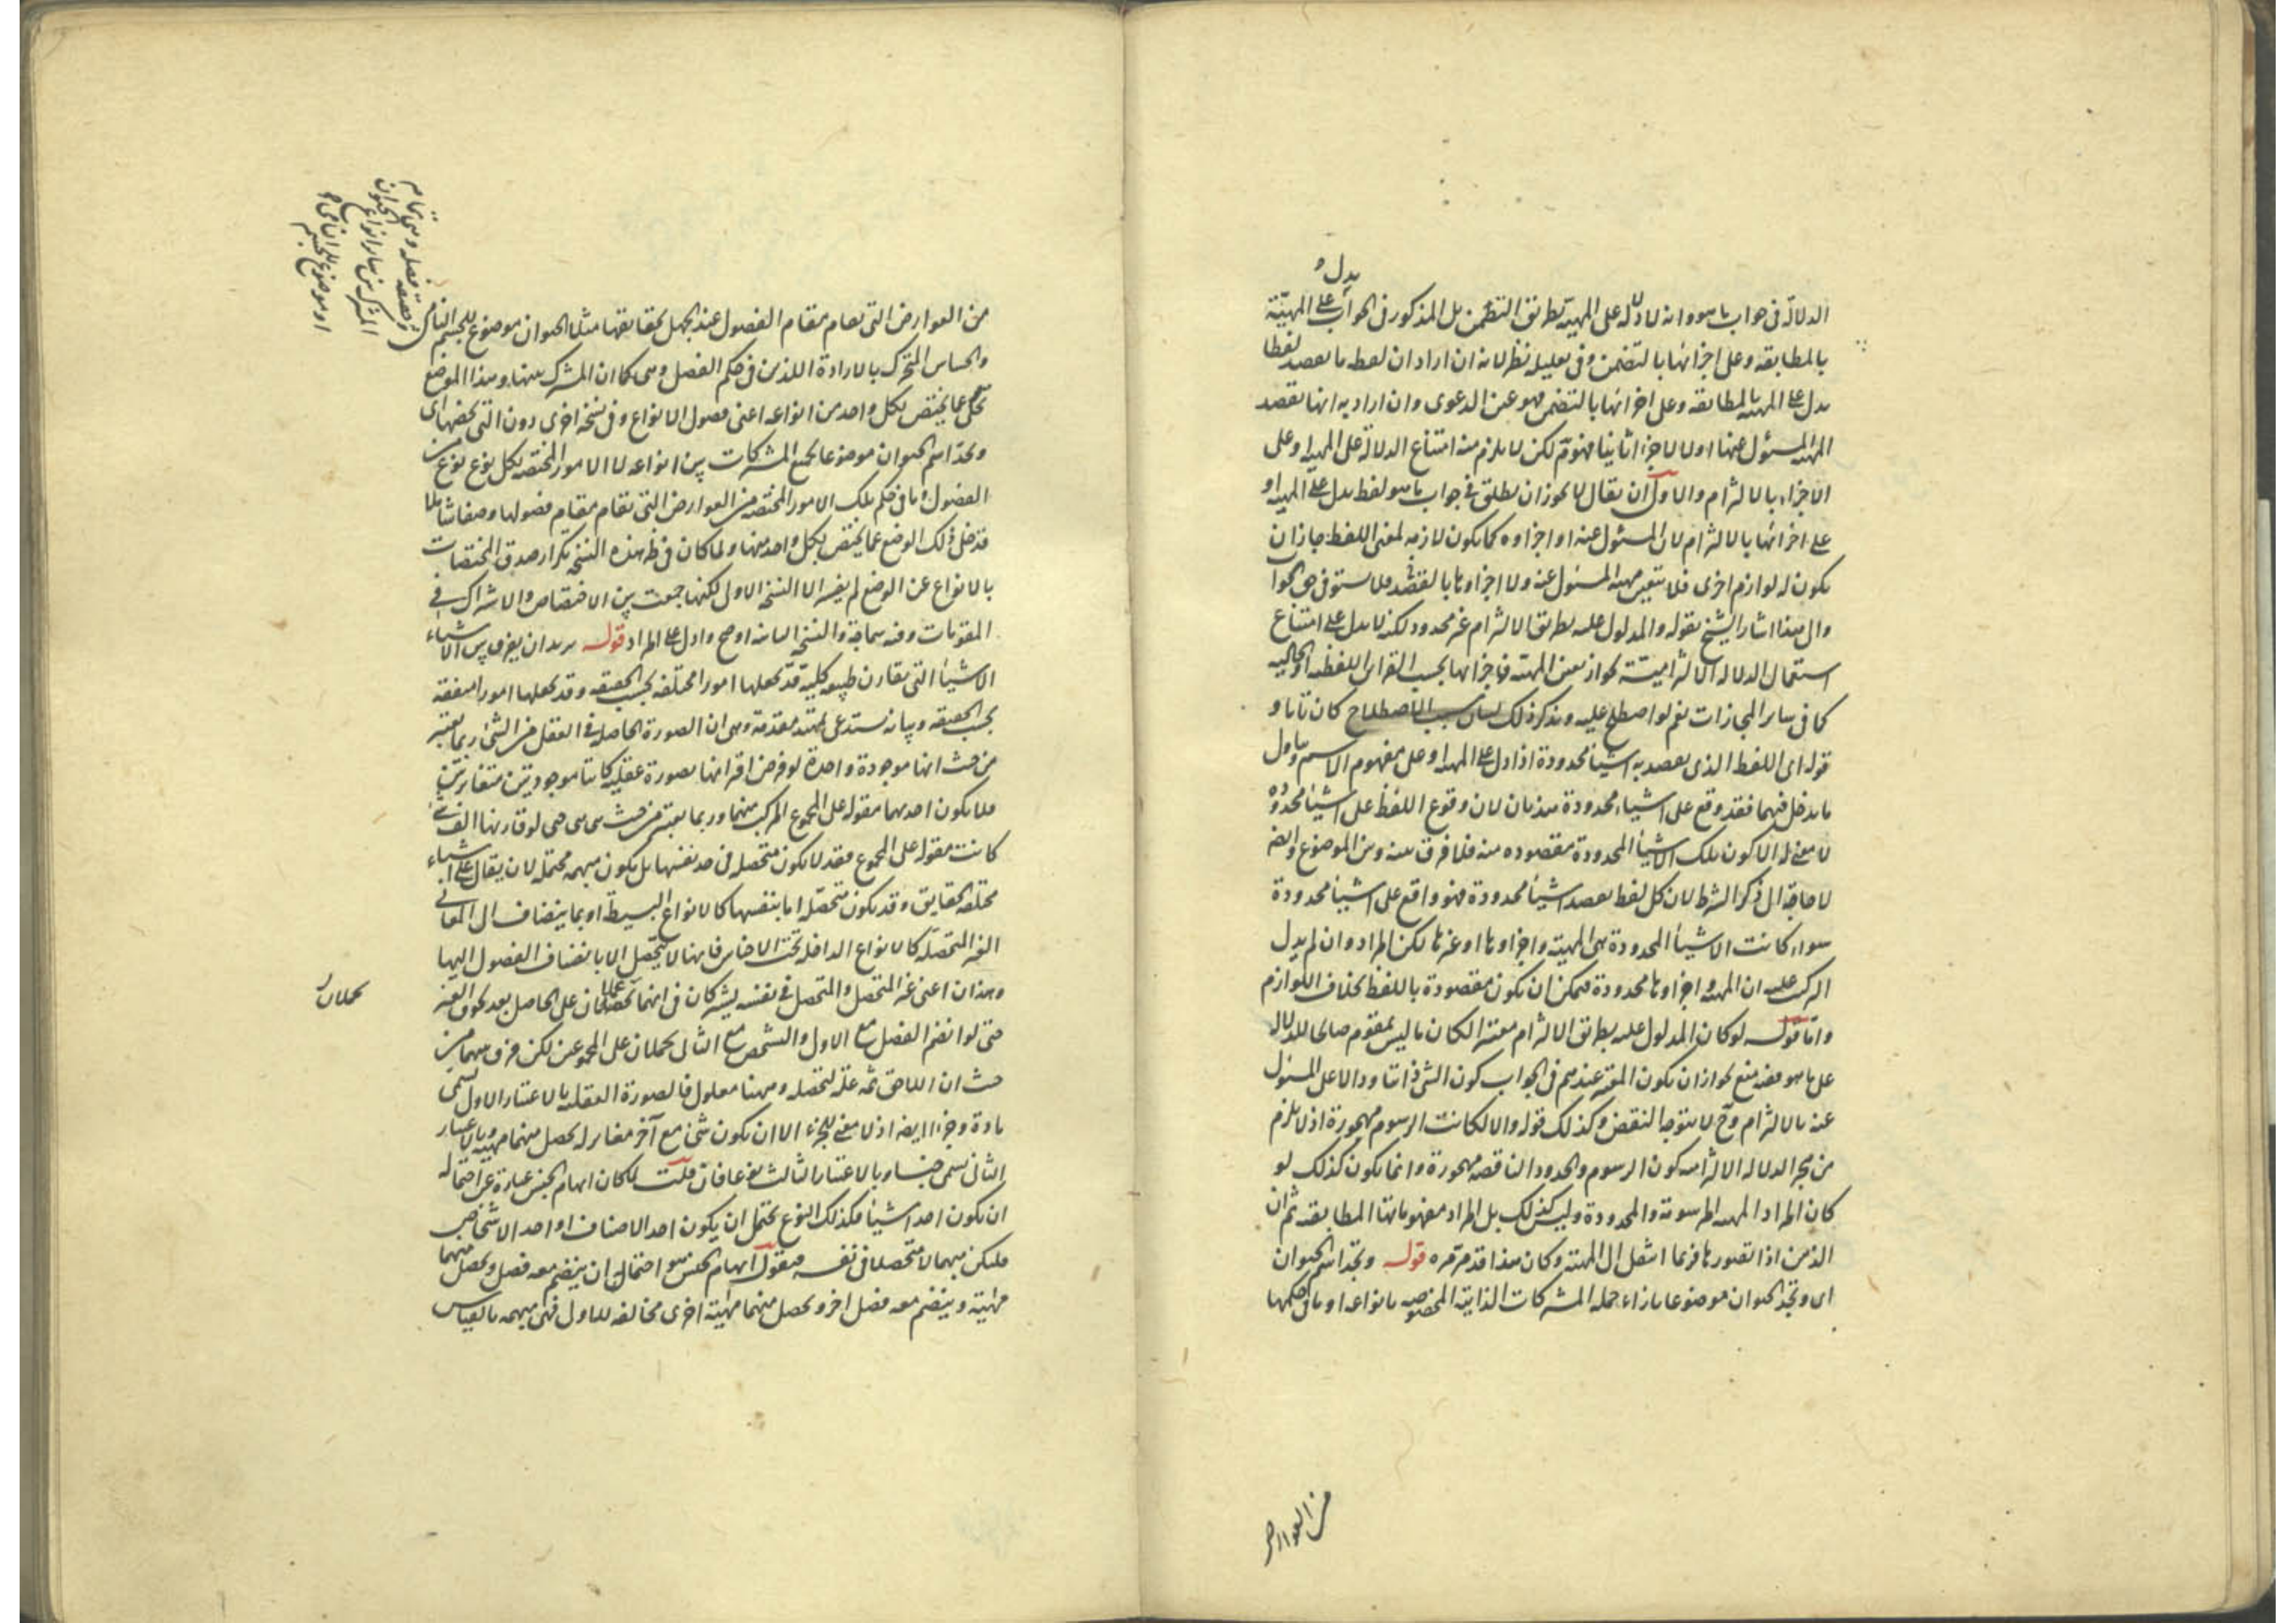 يدل
الدلالة فى جواب ما هو وانه لا دلالة على المهية بطريق التضمن بل المذكور فى الجواب على المهية
بالمطابقه وعلى اجزائها بالتضمن وفى تعليله نظر لانه ان اراد ان لفظ ما يقصد لفظا
يدل على المهيه بالمطابقه وعلى اجزائها بالتضمن فهو عين الدعوى وان اراد به انها تقصد
المهية المسئول عنها اولا والاجزاء ثانيا فهو مم لكن لا يلزم منه امتناع الدلالة على المهيه وعلى
الاجزاء بالالتزام والاولى ان يقال لا يجوز ان يطلق فى جواب ما هو لفظ يدل على المهيه او
على اجزائها بالالتزام لان المسئول عنه او اجزاوه كما يكون لازمه لمعنى اللفظ جاز ان
يكون له لوازم اخرى فلا يتعين مهية المسئول عنه ولا اجزاوها بالقصد فلا يستوفى حق الجوا
والى هذا اشار الشيخ بقوله والمدلول عليه بطريق الالتزام غير محدود لكنه لا يدل على امتناع
استعمال الدلاله الالتزامية لجواز تعين المهية واجزائها بحسب القراين اللفظيه او الحاليه
كما فى ساير المجازات نعم لو اصطلح عليه وذكر ذلك لبيان سبب الاصطلاح كان تاما و
قوله اى اللفظ الذى يقصد به اشيئا محدودة اذا دل على المهيه وعلى مفهوم الاسم
ما يدخل فيهما فقد وقع على اشياء محدودة هذيان لان وقوع اللفظ على اشيئا محدوده
لا معنى له الا كون تلك الاشيئا المحدودة مقصوده منه فلا فرق بينه وبين الموضوع وايضه
لا حاجة الى ذكر الشرط لان كل لفظ يقصد اشيئا محدودة فهو واقع على اشيئا محدودة
سواء كانت الاشيئا المحدودة هى المهية واجزاوها او غيرها لكن المراد وان لم يدل
التركيب عليه ان المهيه واجزاوها محدودة فيمكن ان يكون مقصودة باللفظ بخلاف اللوازم
واما قوله لو كان المدلول عليه بطريق الالتزام معتبرا لكان ما ليس بمقوم صالحا للدلاله
على ما هو ففيه منع لجواز ان يكون المعتبر عندهم فى الجواب كون الشى ذاتيا ودالا على المسئول
عنه بالالتزام وح لا يتوجه النقض وكذلك قوله والا لكانت الرسوم مهجورة اذ لا يلزم
من هجر الدلاله الالتزاميه كون الرسوم والحدود الناقصه مهجورة وانما يكون كذلك لو
كان المراد المهيه المرسومة والمحدودة وليس كذلك بل المراد مفهوماتها المطابقيه ثم ان
الذهن اذا تصورها فربما انتقل الى المهية وكان هذا قد مر مره قوله وتجد اسم الحيوان
اى وتجد الحيوان موضوعا بازاء جمله المشتركات الذاتية المخصوصه بانواعه او ما فى حكمها
من العوارض
من العوارض التى تقام مقام الفصول عند الجهل بحقايقها مثلا الحيوان موضوع للجسم النامى
والحساس المتحرك بالارادة اللذين فى حكم الفصل وهى كما ان المشترك بينها وهذا الموضع
تخلى عما يختص بكل واحد من انواعه اعنى فصول الانواع وفى نسخة اخرى دون التى تخصها اى
وتجد اسم الحيوان موضوعا لجميع المشتركات بين انواعه لا الامور المختصه بكل نوع نوع من
الفصول وما فى حكم تلك الامور المختصه من العوارض التى تقام مقام فصولها وصفا شاملا
فدخل فى ذلك الوضع عما يختص بكل واحد منها ولما كان فى ظ هذه النسخه تكرار صدق المختصات
بالانواع عن الوضع لم يفسر الا النسخه الاولى لكنها جمعت بين الاختصاص والاشتراك فى
المقومات وفيه سماجة والنسخه الثانيه اوضح وادل على المراد قوله يريد ان يفرق بين الاشياء
الاشيئا التى تقارن طبيعه كلية قد تجعلها امورا مختلفه بحسب الحقيقه وقد تجعلها امورا متفقه
بحسب الحقيقه وبيانه يستدعى تمهيد مقدمة وهى ان الصورة الحاصله فى العقل من الشئ ربما يعتبر
من حيث انها موجودة واحدة لو فرض اقترانها بصورة عقليه كانتا موجودتين متغايرتين
فلا يكون احديهما مقوله على المجموع المركب منهما وربما يعتبر من حيث هى هى حتى لو قارنها الف شئ
كانت مقوله على المجموع فقد لا يكون متحصله فى حد نفسها بل يكون مبهمه محتملة لان يقال على اشياء
مختلفه الحقايق وقد يكون متحصله اما بنفسها كالانواع البسيطة او بما ينضاف الى المعانى
الغير المتحصله كالانواع الداخله تحت الاجناس فانها لا يتحصل الا بانضياف الفصول اليها
وهذان اعنى غير المتحصل والمتحصل فى نفسه يشتركان فى انهما يحملان على الحاصل بعد لحوق الغير
حتى لو انضم الفصل مع الاول والتشخص مع الثانى يحملان على المجموعين لكن فرق بينهما من
حيث ان اللاحق ثمه علة لتحصله وههنا معلول فالصورة العقليه بالاعتبار الاول تسمى
مادة وجزءا ايضه اذ لا معنى للجزء الا ان يكون شئ مع آخر مغاير له يحصل منهما مهيه وبالاعتبار
الثانى تسمى جنسا وبالاعتبار الثالث نوعا فان قلت لما كان ابهام الجنس عبارة عن احتماله
ان يكون احد اشيئا فكذلك النوع يحتمل ان يكون احد الاصناف او احد الاشخاص
فليكن مبهما لا متحصلا فى نفسه فنقول ابهام الجنس هو احتمال ان ينضم معه فصل ويحصل منهما
مهية وينضم معه فصل اخر ويحصل منهما مهية اخرى مخالفه للاول فهى مبهمه بالقياس
فصله وهى تمام
الحيوان
المشترك بين ساير انواع
او موضوع للجسم
يحملان